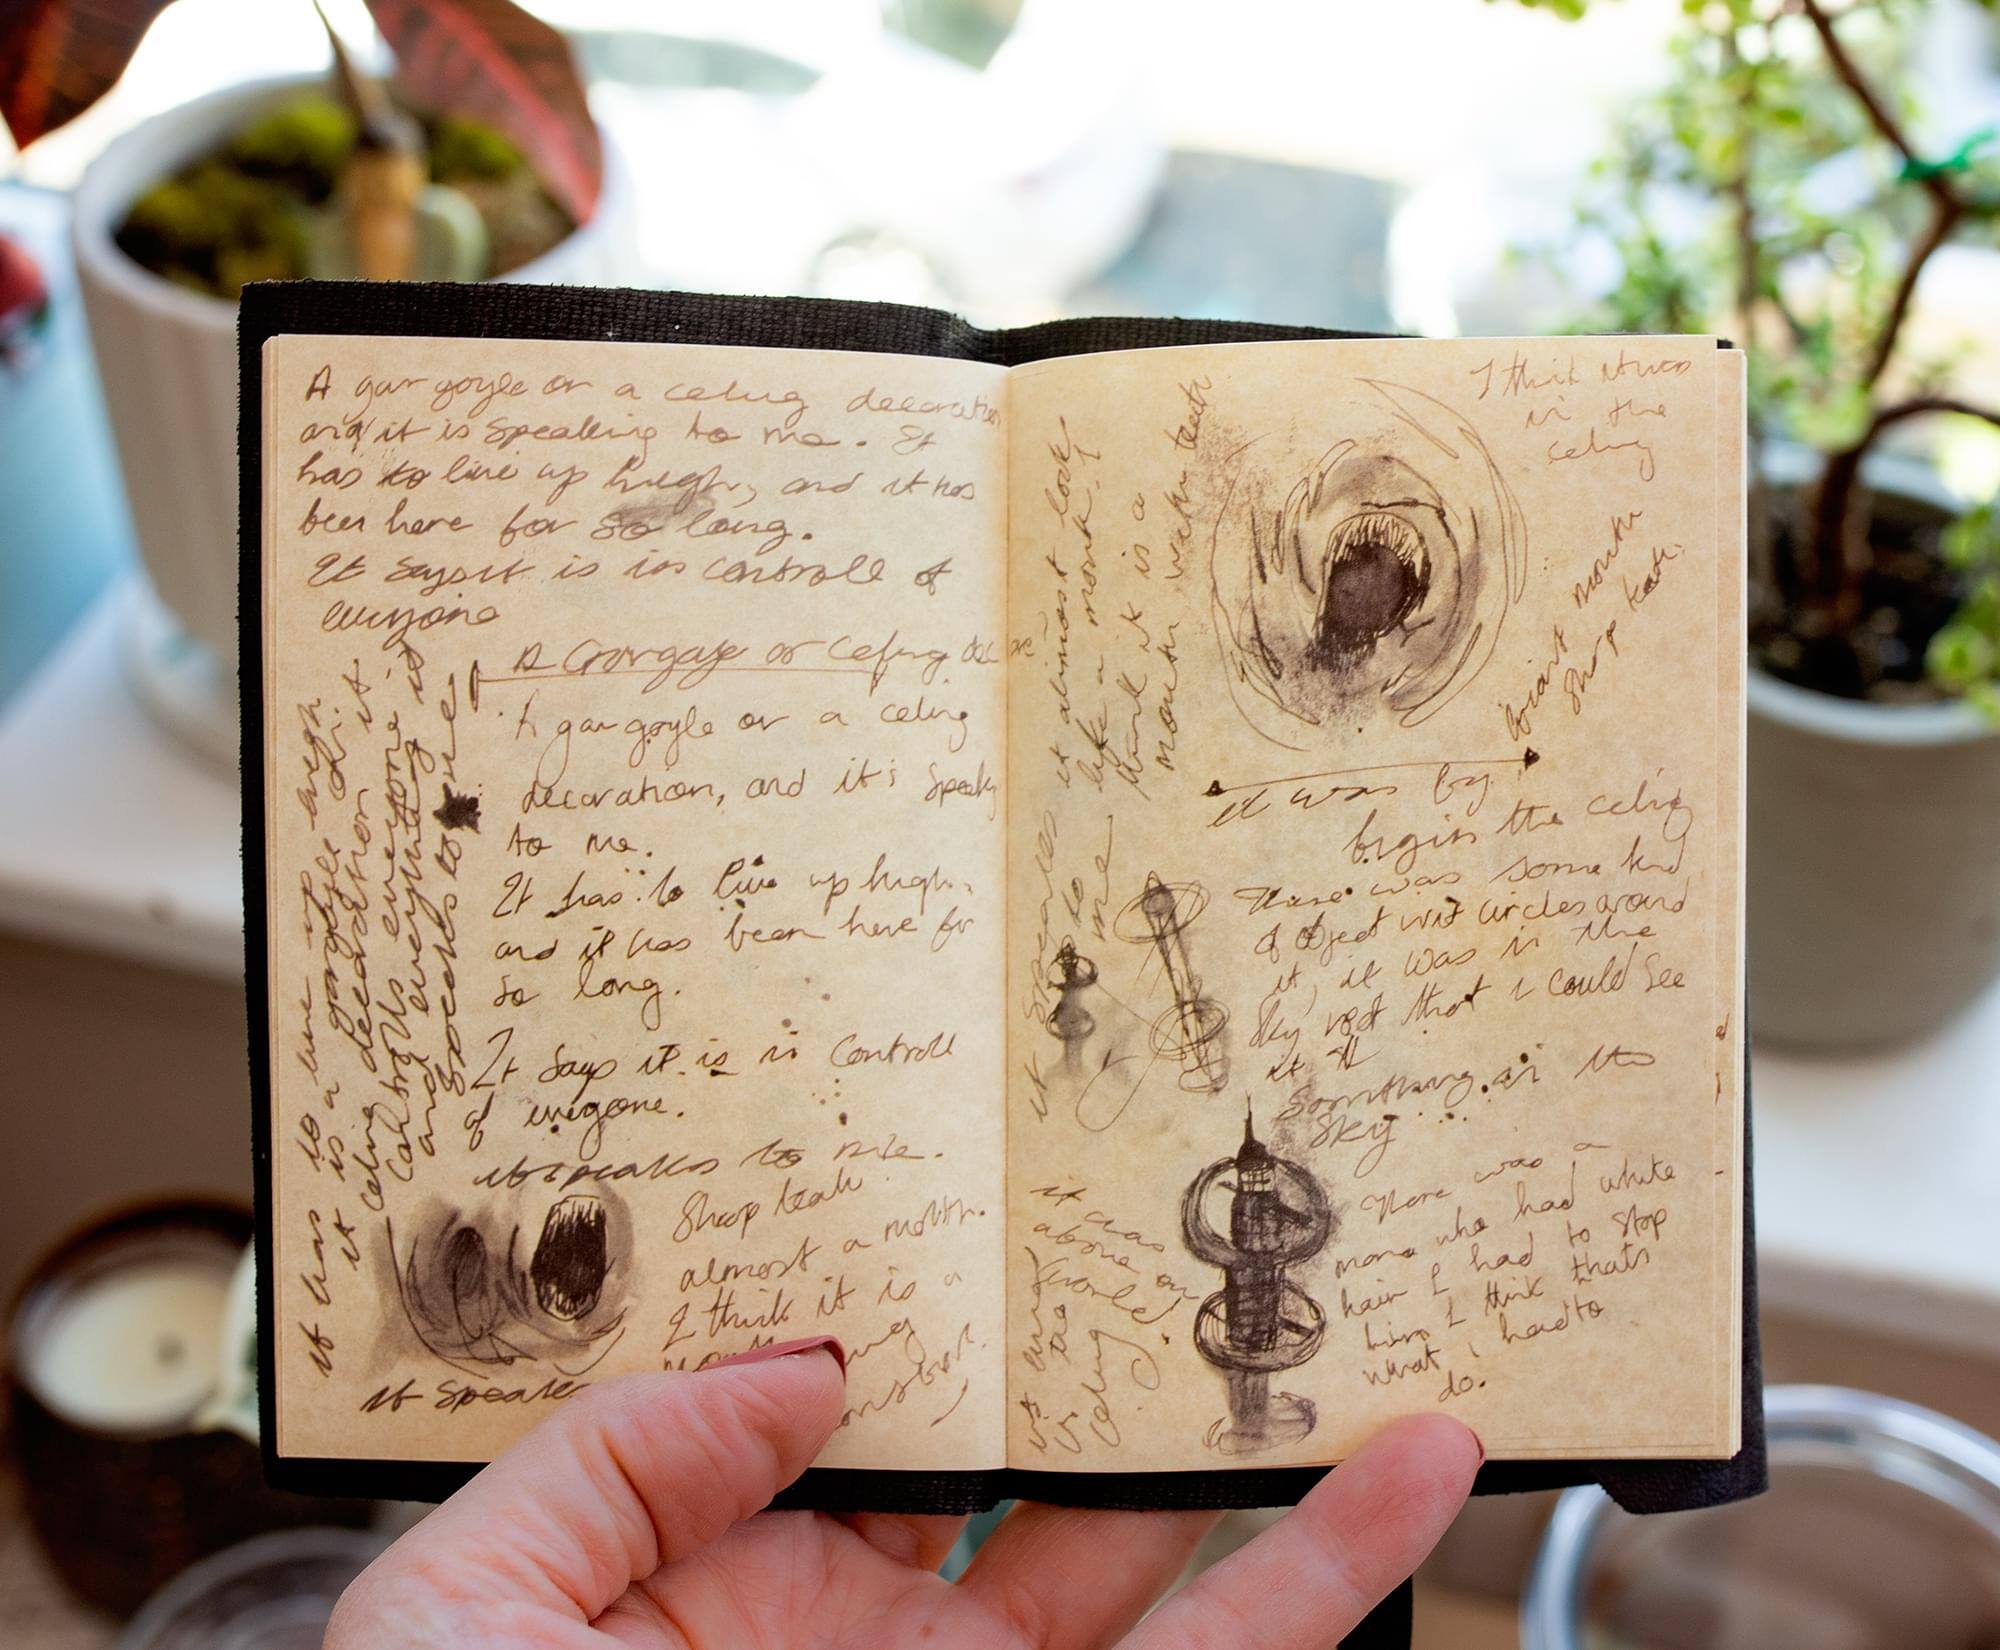 A gargoyle or a celing decoration
and it is speaking to me. It
has to live up high, and it has
been here for so long.
It says it is in controll of
everyone
A Gorgoyle or Celing dec
A gargoyle or a celing
decoration, and it's speaky
to me.
It has to live up high.
and it has been here for
so long.
It says it is in controll
of everyone.
it speaks to me.
Sharp teath
almost a mouth.
I think it is a
it speaks
it has to live up high
it is a gargoyle or
celing decoration it
controls everyone
and everything it
speaks to me
it almost look
like a mouth. I
think it is a
mouth with teeth
it speaks to
me
I think it was
in the
celing
Giant mouth
sharp teath.
it was by
begin the celing
There was some kind
of object wit circles around
it, it was in the
sky not that i could see
it
Something in the
Sky...
There was a
mana who had white
hair I had to stop
him I think thats
what i had to
do.
it was
above our
world
it lived
in the
celing